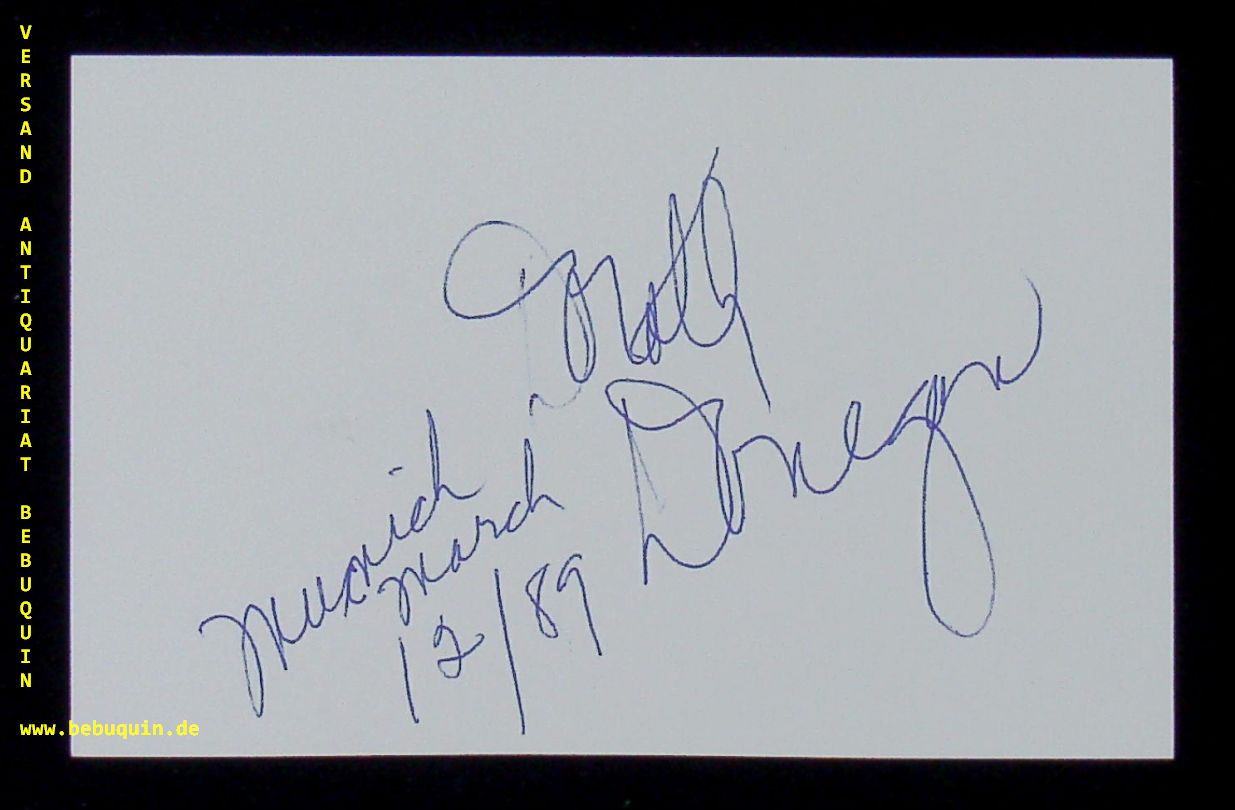 VERSAND ANTIQUARIAT BEBUQUIN
Donegan
Munich
March
12/89
www.bebuquin.de